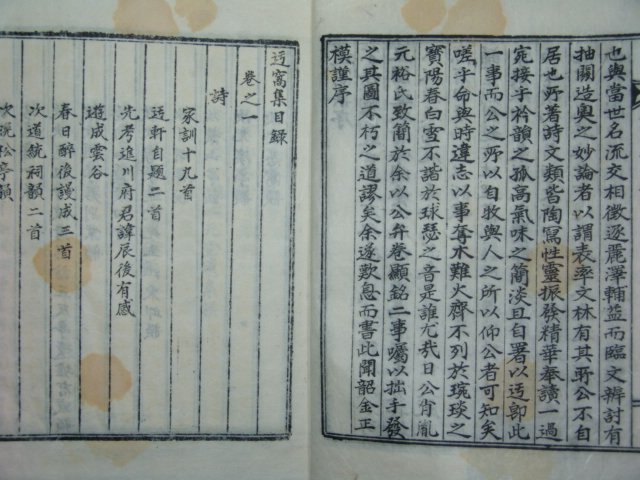 也與當世名流交相徵逐麗澤輔益而臨文辨討有
抽關造奧之妙論者以謂表率文林有其所公不自
居也所著詩文類皆陶寫性靈振發精華奉讀一過
宛接乎衿韻之孤高氣味之簡淡且自署以迃郎此
一事而公之所以自牧與人之所以仰公者可知矣
嗟乎命與時違志以事奪木難火齊不列於琬琰之
寶陽春白雪不諧於球瑟之音是誰尤哉日公肖胤
元裕氏致簡於余以公弁卷顯銘二事囑以拙手發
之其圖不朽之道謬矣余遂歎息而書此聞韶金正
模謹序
迃窩集目錄
卷之一
詩
家訓十九首
迃軒自題二首
先考進川府君諱辰後有感
遊成雲谷
春日醉後謾成三首
次道統祠韻二首
次脫松亭韻